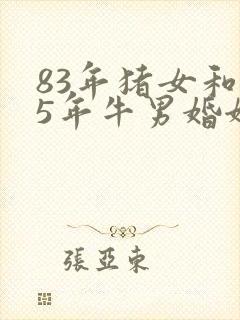 83年猪女和
5年牛男婚姻
張亞東